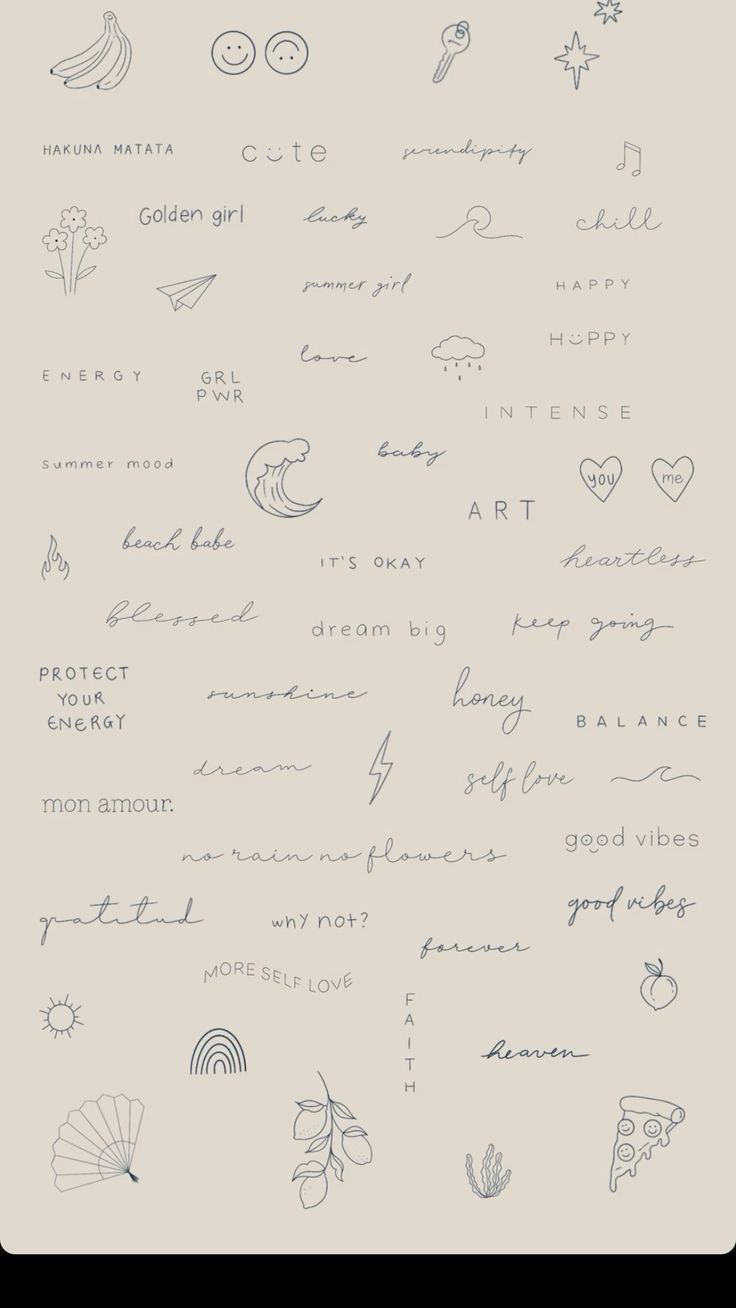 HAKUNA MATATA
cute
serendipity
Golden girl
lucky
chill
summer girl
HAPPY
HÜPPY
love
ENERGY
GRL
PWR
INTENSE
summer mood
baby
you
me
ART
beach babe
IT'S OKAY
heartless
blessed
dream big
keep going
PROTECT
YOUR
ENERGY
sunshine
honey
BALANCE
dream
self love
mon amour.
no rain no flowers
good vibes
gratitud
why not?
good vibes
forever
MORE SELF LOVE
FAITH
heaven